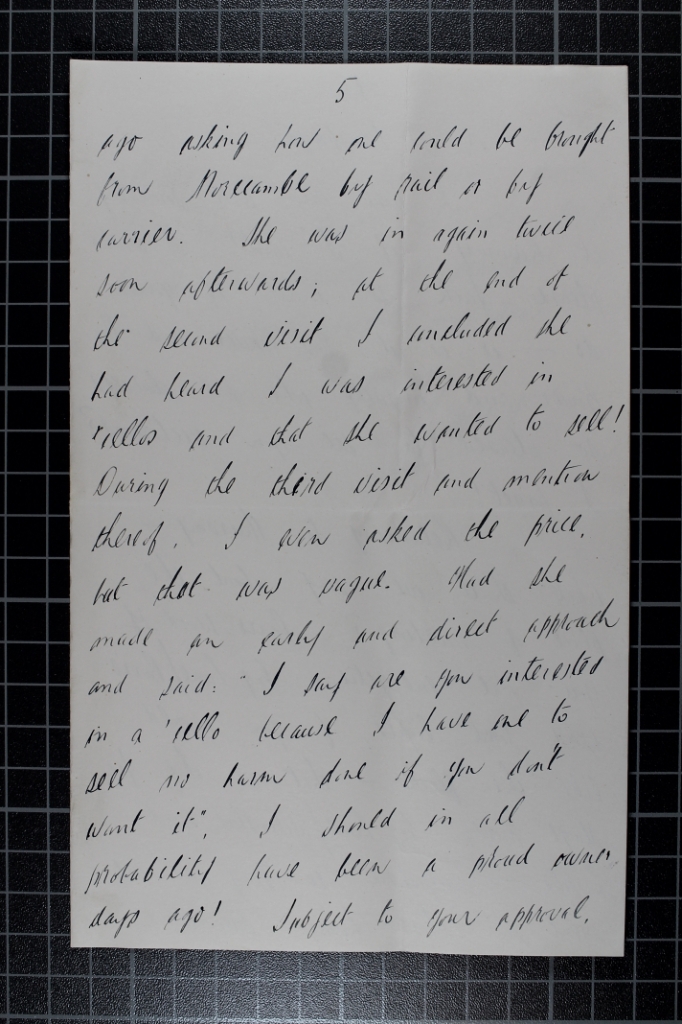 5
ago asking how one could be brought
from Morecambe by rail or by
carrier. She was in again twice
soon afterwards; at the end of
the second visit I concluded she
had heard I was interested in
'cellos and that she wanted to sell!
During the third visit and mention
thereof, I even asked the price,
but that was vague. Had she
made an early and direct approach
and said: "I say are you interested
in a 'cello because I have one to
sell no harm done if you don't
want it", I should in all
probability have been a proud owner
days ago! Subject to your approval,